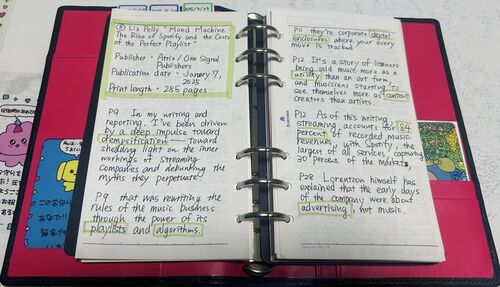 Liz Pelly "Mood Machine
The Rise of Spotify and the Costs
of the Perfect Playlist"
Publisher - Atria / One Signal
Publishers
Publication date - January 7,
2025
Print length - 285 pages
P9 In my writing and
reporting, I've been driven
by a deep impulse toward
demystification - Toward
shedding light on the inner
workings of streaming
companies and debunking the
myths they perpetuate.
P9 that was rewriting the
rules of the music business
through the power of its
playlists and algorithms.
P11 they're corporate digital
enclosures where your every
move is tracked.
P12 It's a story of listeners
being sold music more as a
utility than an art form,
and musicians starting to
see themselves more as content
creators than artists.
P12 As of this writing
streaming accounts for 84
percent of recorded music
revenues, with Spotify, the
largest of services, capturing
30 percent of the market,
P28 Lorentzon himself has
explained that the early days
of the company were about
advertising, not music.